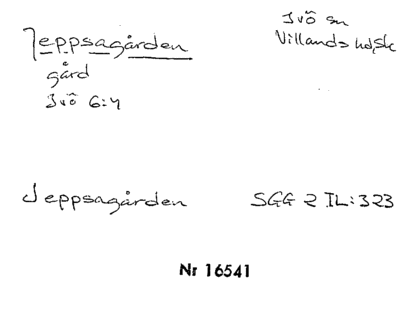 Jeppsagården
gård
Ivö 6:4
Ivö sn
Villands hd, Sk
Jeppsagården SGG 2 IL:323
Nr 16541